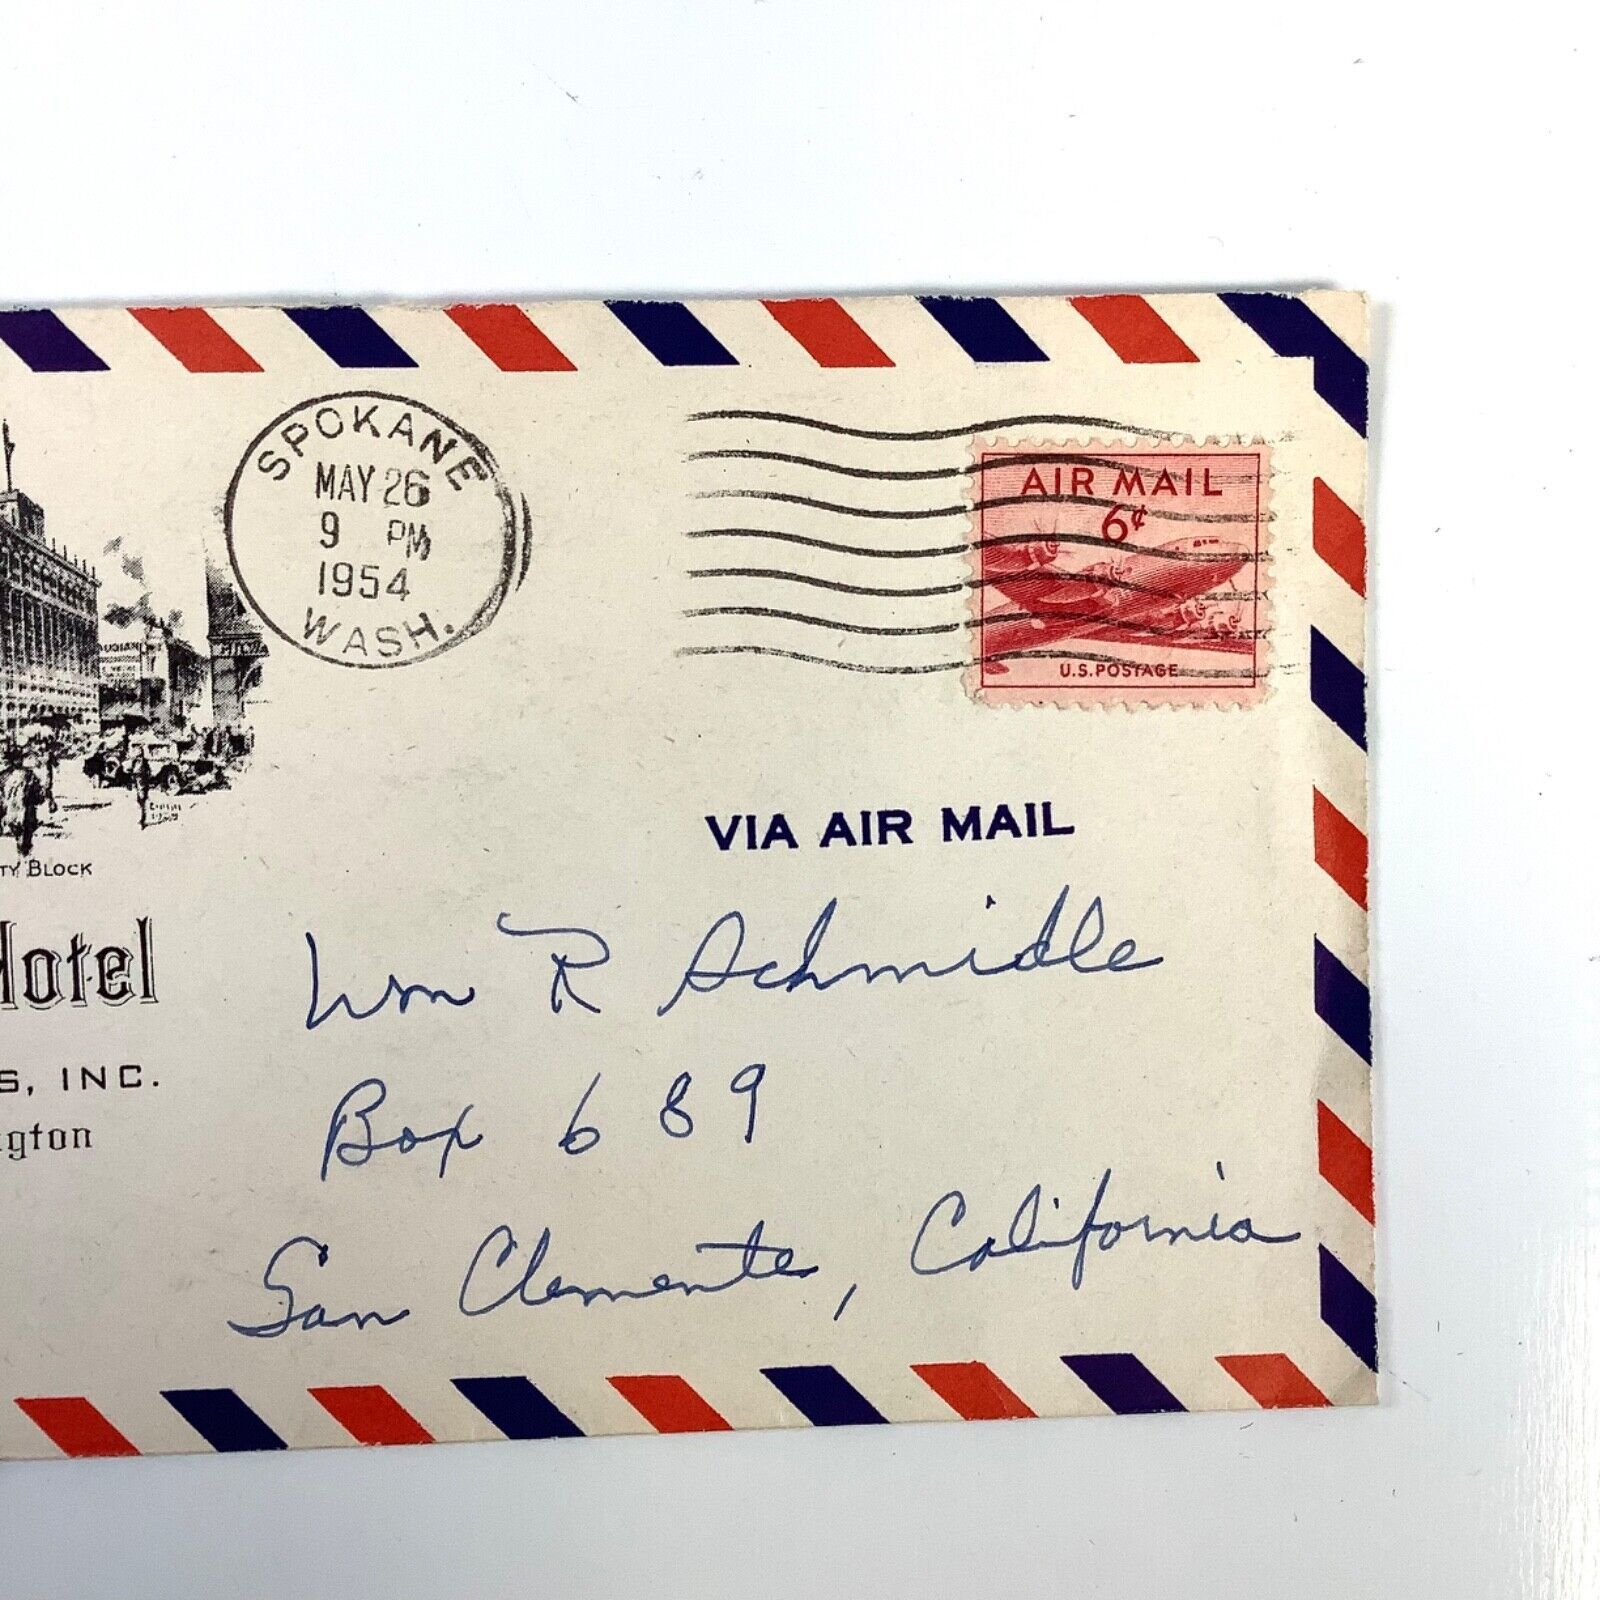 SPOKANE
MAY 26
9 PM
1954
WASH.
AIR MAIL
6¢
U.S. POSTAGE
TY BLOCK
VIA AIR MAIL
Hotel
S, INC.
ngton
Wm R Schmidle
Box 689
San Clemente, California